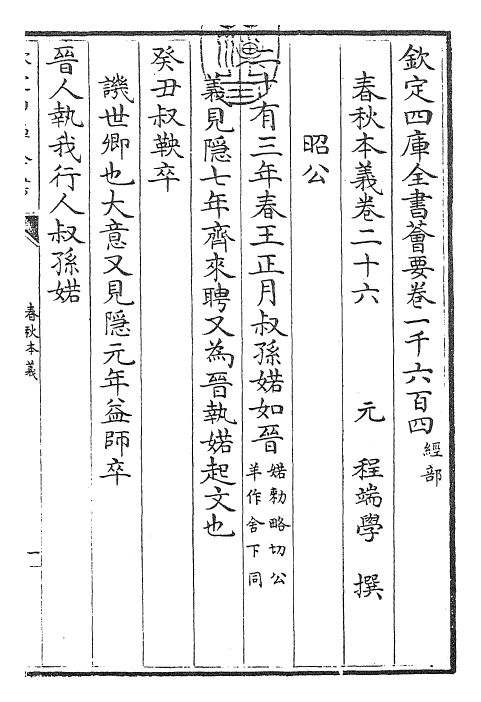 欽定四庫全書薈要卷一千六百四 經部
春秋本義卷二十六 元 程端學 撰
昭公
二十有三年春王正月叔孫婼如晉 婼勅略切公羊作舍下同
義見隱七年齊來聘又為晉執婼起文也
癸丑叔鞅卒
譏世卿也大意又見隱元年益師卒
晉人執我行人叔孫婼
春秋本義
一